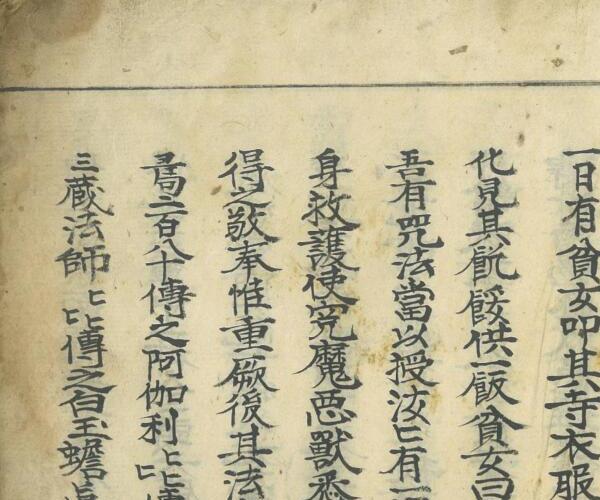 一日有貧女叩其寺衣服
化見其飢餒供一飯貧女曰
吾有咒法當以授汝匕有
身救護使冤魔惡獸悉
得之敬奉惟重厥後其法
昺二百八十傳之阿伽利匕匕傳
三藏法師匕匕傳之白玉蟾真